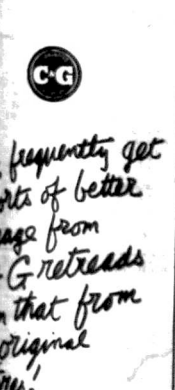 C&G
frequently get
orts of better
age from
G retreads
n that from
original
res!